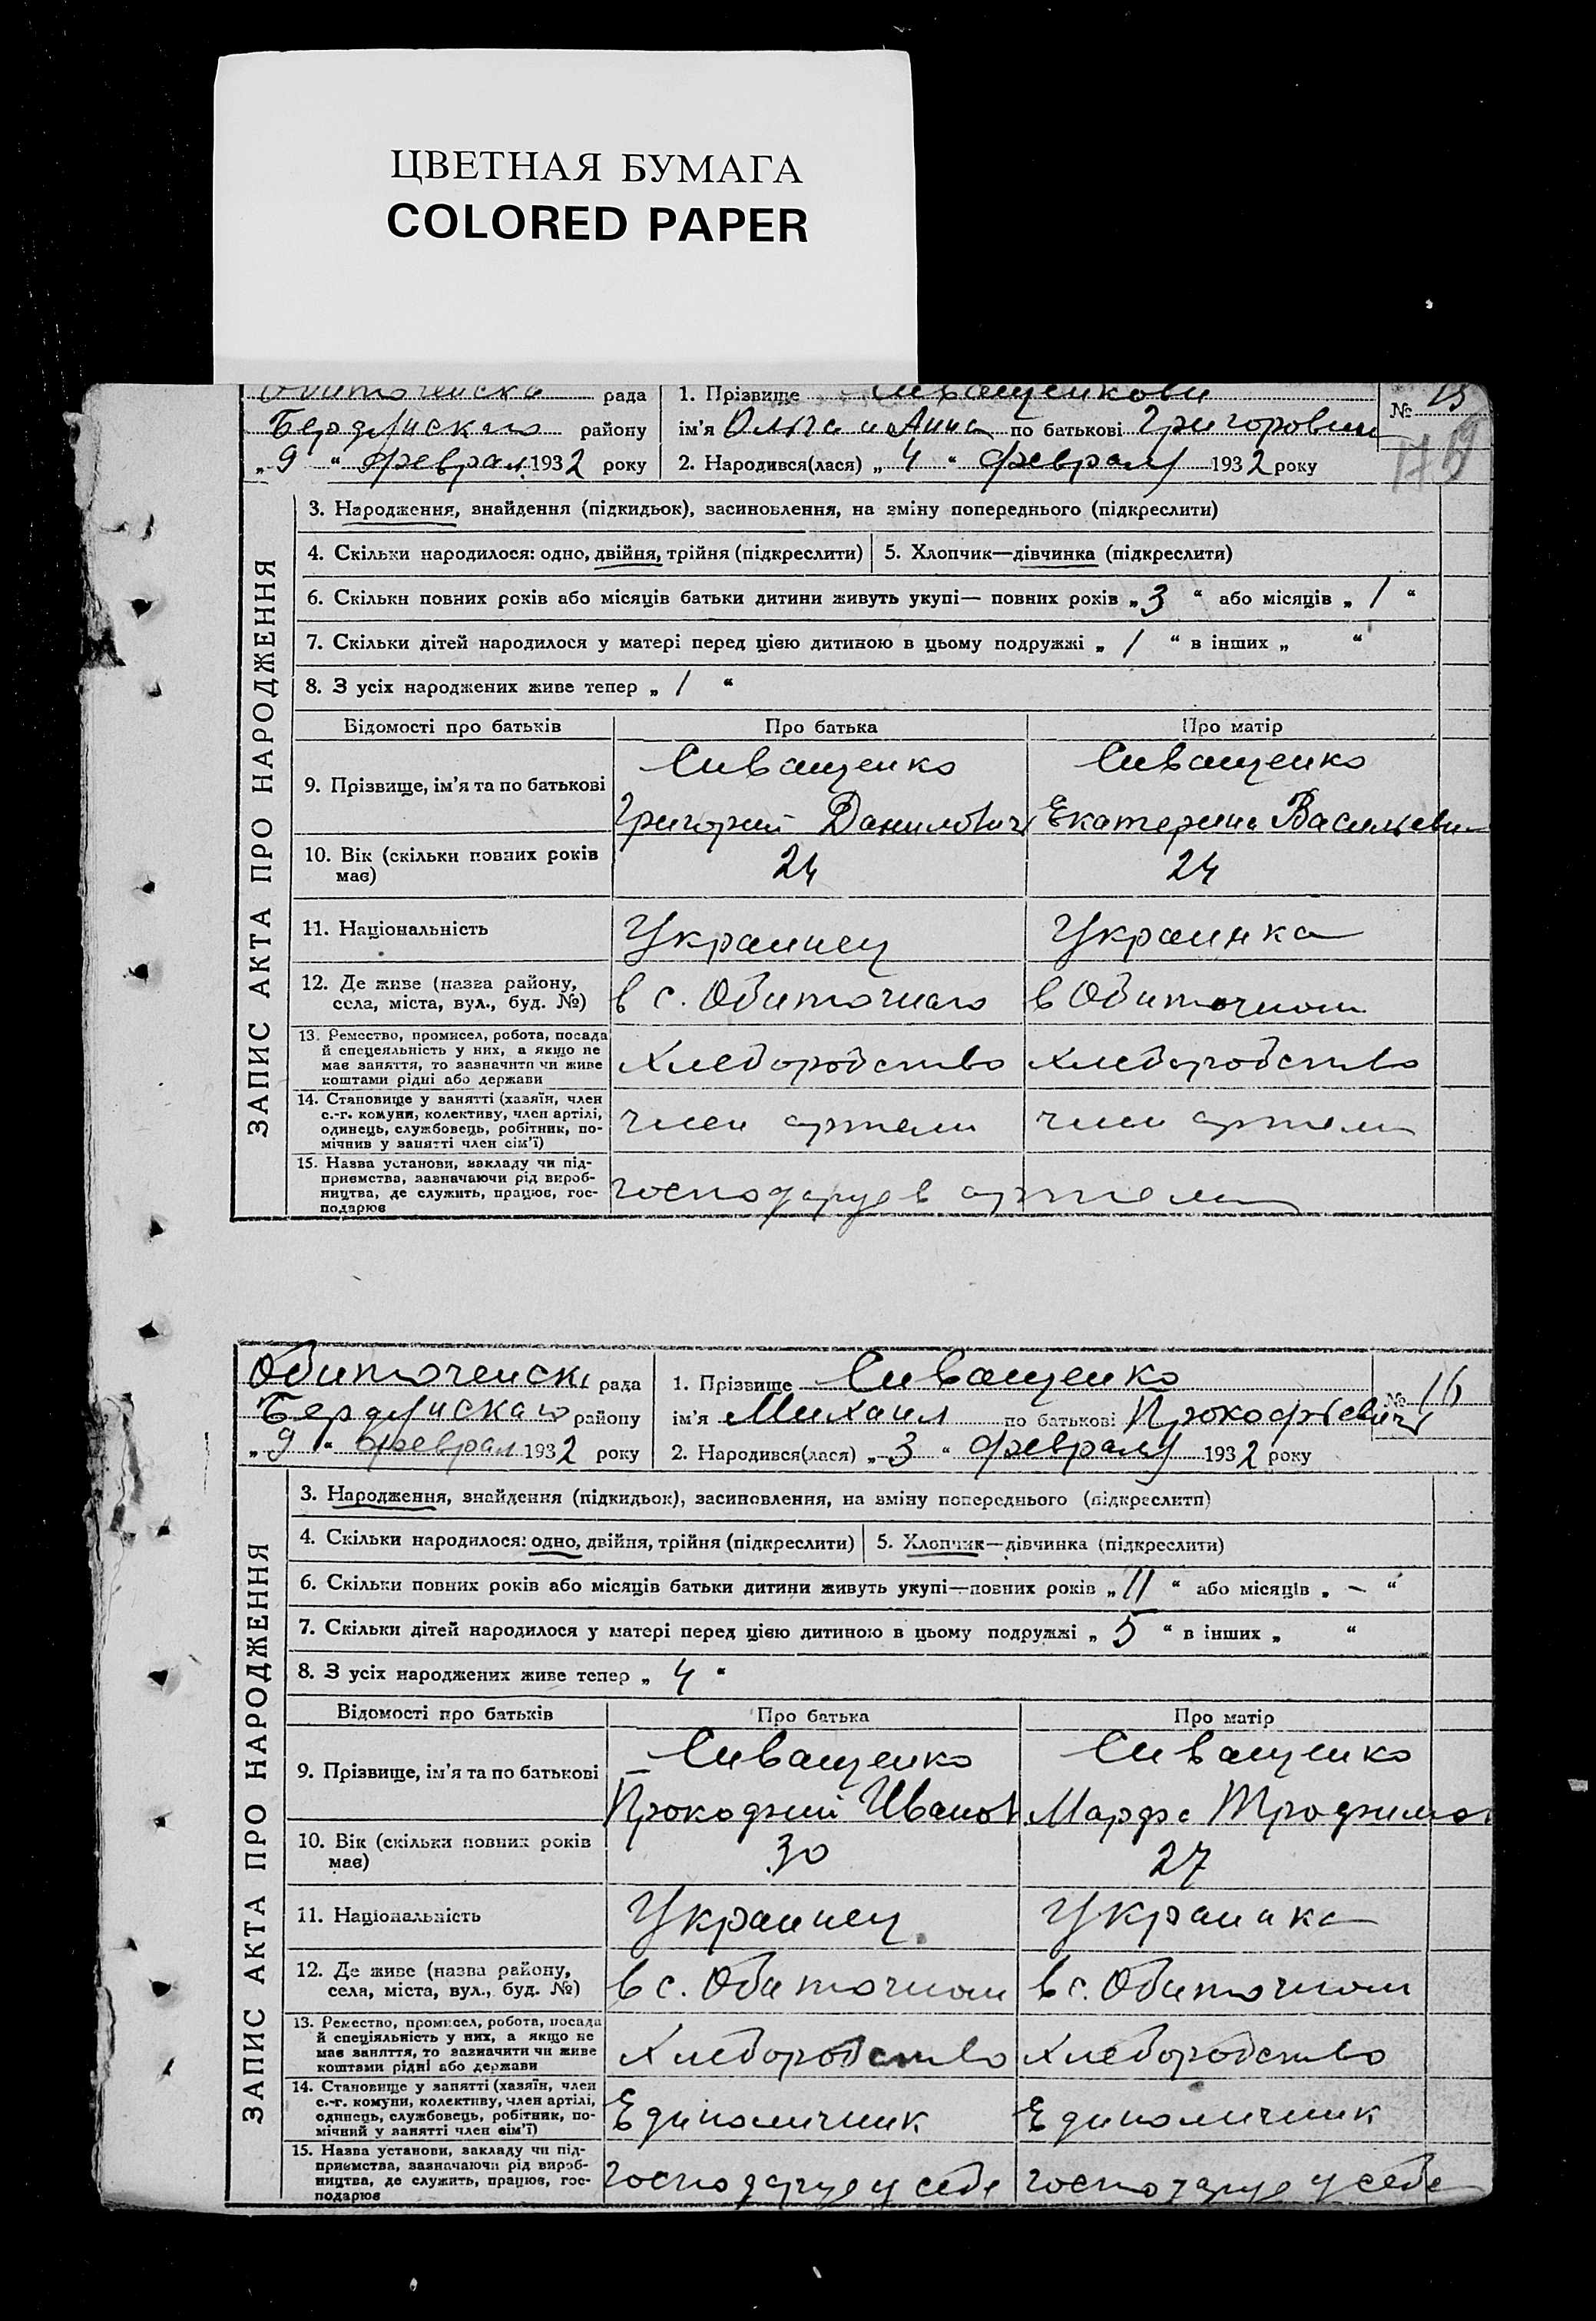 ЦВЕТНАЯ БУМАГА
COLORED PAPER
рада
1. Прізвище Сиващенкови
№ 15
Бердянского району
ім'я Ольга и Анна по батькові Григоровни
„ 9 “ феврал 1932 року
2. Народився(лася) „ 4 “ февраля 1932 року
ЗАПИС АКТА ПРО НАРОДЖЕННЯ
3. Народження, знайдення (підкидьок), засиновлення, на зміну попереднього (підкреслити)
4. Скільки народилося: одно, двійня, трійня (підкреслити)
5. Хлопчик—дівчинка (підкреслити)
6. Скільки повних років або місяців батьки дитини живуть укупі— повних років „ 3 “ або місяців „ 1 “
7. Скільки дітей народилося у матері перед цією дитиною в цьому подружжі „ 1 “ в інших „ “
8. З усіх народжених живе тепер „ 1 “
Відомості про батьків
Про батька
Про матір
9. Прізвище, ім'я та по батькові
Сиващенко
Григорий Данилович
Сиващенко
Екатерина Васильевн
10. Вік (скільки повних років
має)
24
24
11. Національність
Украинец
Украинка
12. Де живе (назва району,
села, міста, вул., буд. №)
в с. Обиточного
в Обиточном
13. Ремество, промисел, робота, посада
й спецеяльність у них, а якщо не
має заняття, то зазначити чи живе
коштами рідні або держави
Хлебородство
хлебородство
14. Становище у занятті (хазяїн, член
с.-г. комуни, колективу, член артілі,
одинець, службовець, робітник, по-
мічник у занятті член сім'ї)
член артели
член артели
15. Назва установи, закладу чи під-
приємства, зазначаючи рід вироб-
ництва, де служить, працює, гос-
подарює
господарує в артели
Обиточенска рада
1. Прізвище Сиващенко
№ 16
Бердянского району
ім'я Михаил по батькові Прокофьевич
„ 9 “ феврал 1932 року
2. Народився(лася) „ 3 “ февраля 1932 року
ЗАПИС АКТА ПРО НАРОДЖЕННЯ
3. Народження, знайдення (підкидьок), засиновлення, на зміну попереднього (підкреслити)
4. Скільки народилося: одно, двійня, трійня (підкреслити)
5. Хлопчик—дівчинка (підкреслити)
6. Скільки повних років або місяців батьки дитини живуть укупі—повних років „ 11 “ або місяців „ – “
7. Скільки дітей народилося у матері перед цією дитиною в цьому подружжі „ 5 “ в інших „ “
8. З усіх народжених живе тепер „ 4 “
Відомості про батьків
Про батька
Про матір
9. Прізвище, ім'я та по батькові
Сиващенко
Прокофий Иванов
Сиващенко
Марфа Трофимов
10. Вік (скільки повних років
має)
30
27
11. Національність
Украинец
Украинка
12. Де живе (назва району,
села, міста, вул., буд. №)
в с. Обиточном
в с. Обиточном
13. Ремество, промисел, робота, посада
й спеціяльність у них, а якщо не
має заняття, то зазначити чи живе
коштами рідні або держави
Хлебородство
хлебородство
14. Становище у занятті (хазяїн, член
с.-г. комуни, колективу, член артілі,
одинець, службовець, робітник, по-
мічний у занятті член сім'ї)
Единоличник
Единоличник
15. Назва установи, закладу чи під-
приємства, зазначаючи рід вироб-
ництва, де служить, працює, гос-
подарює
господарує у себе
господарує у себе